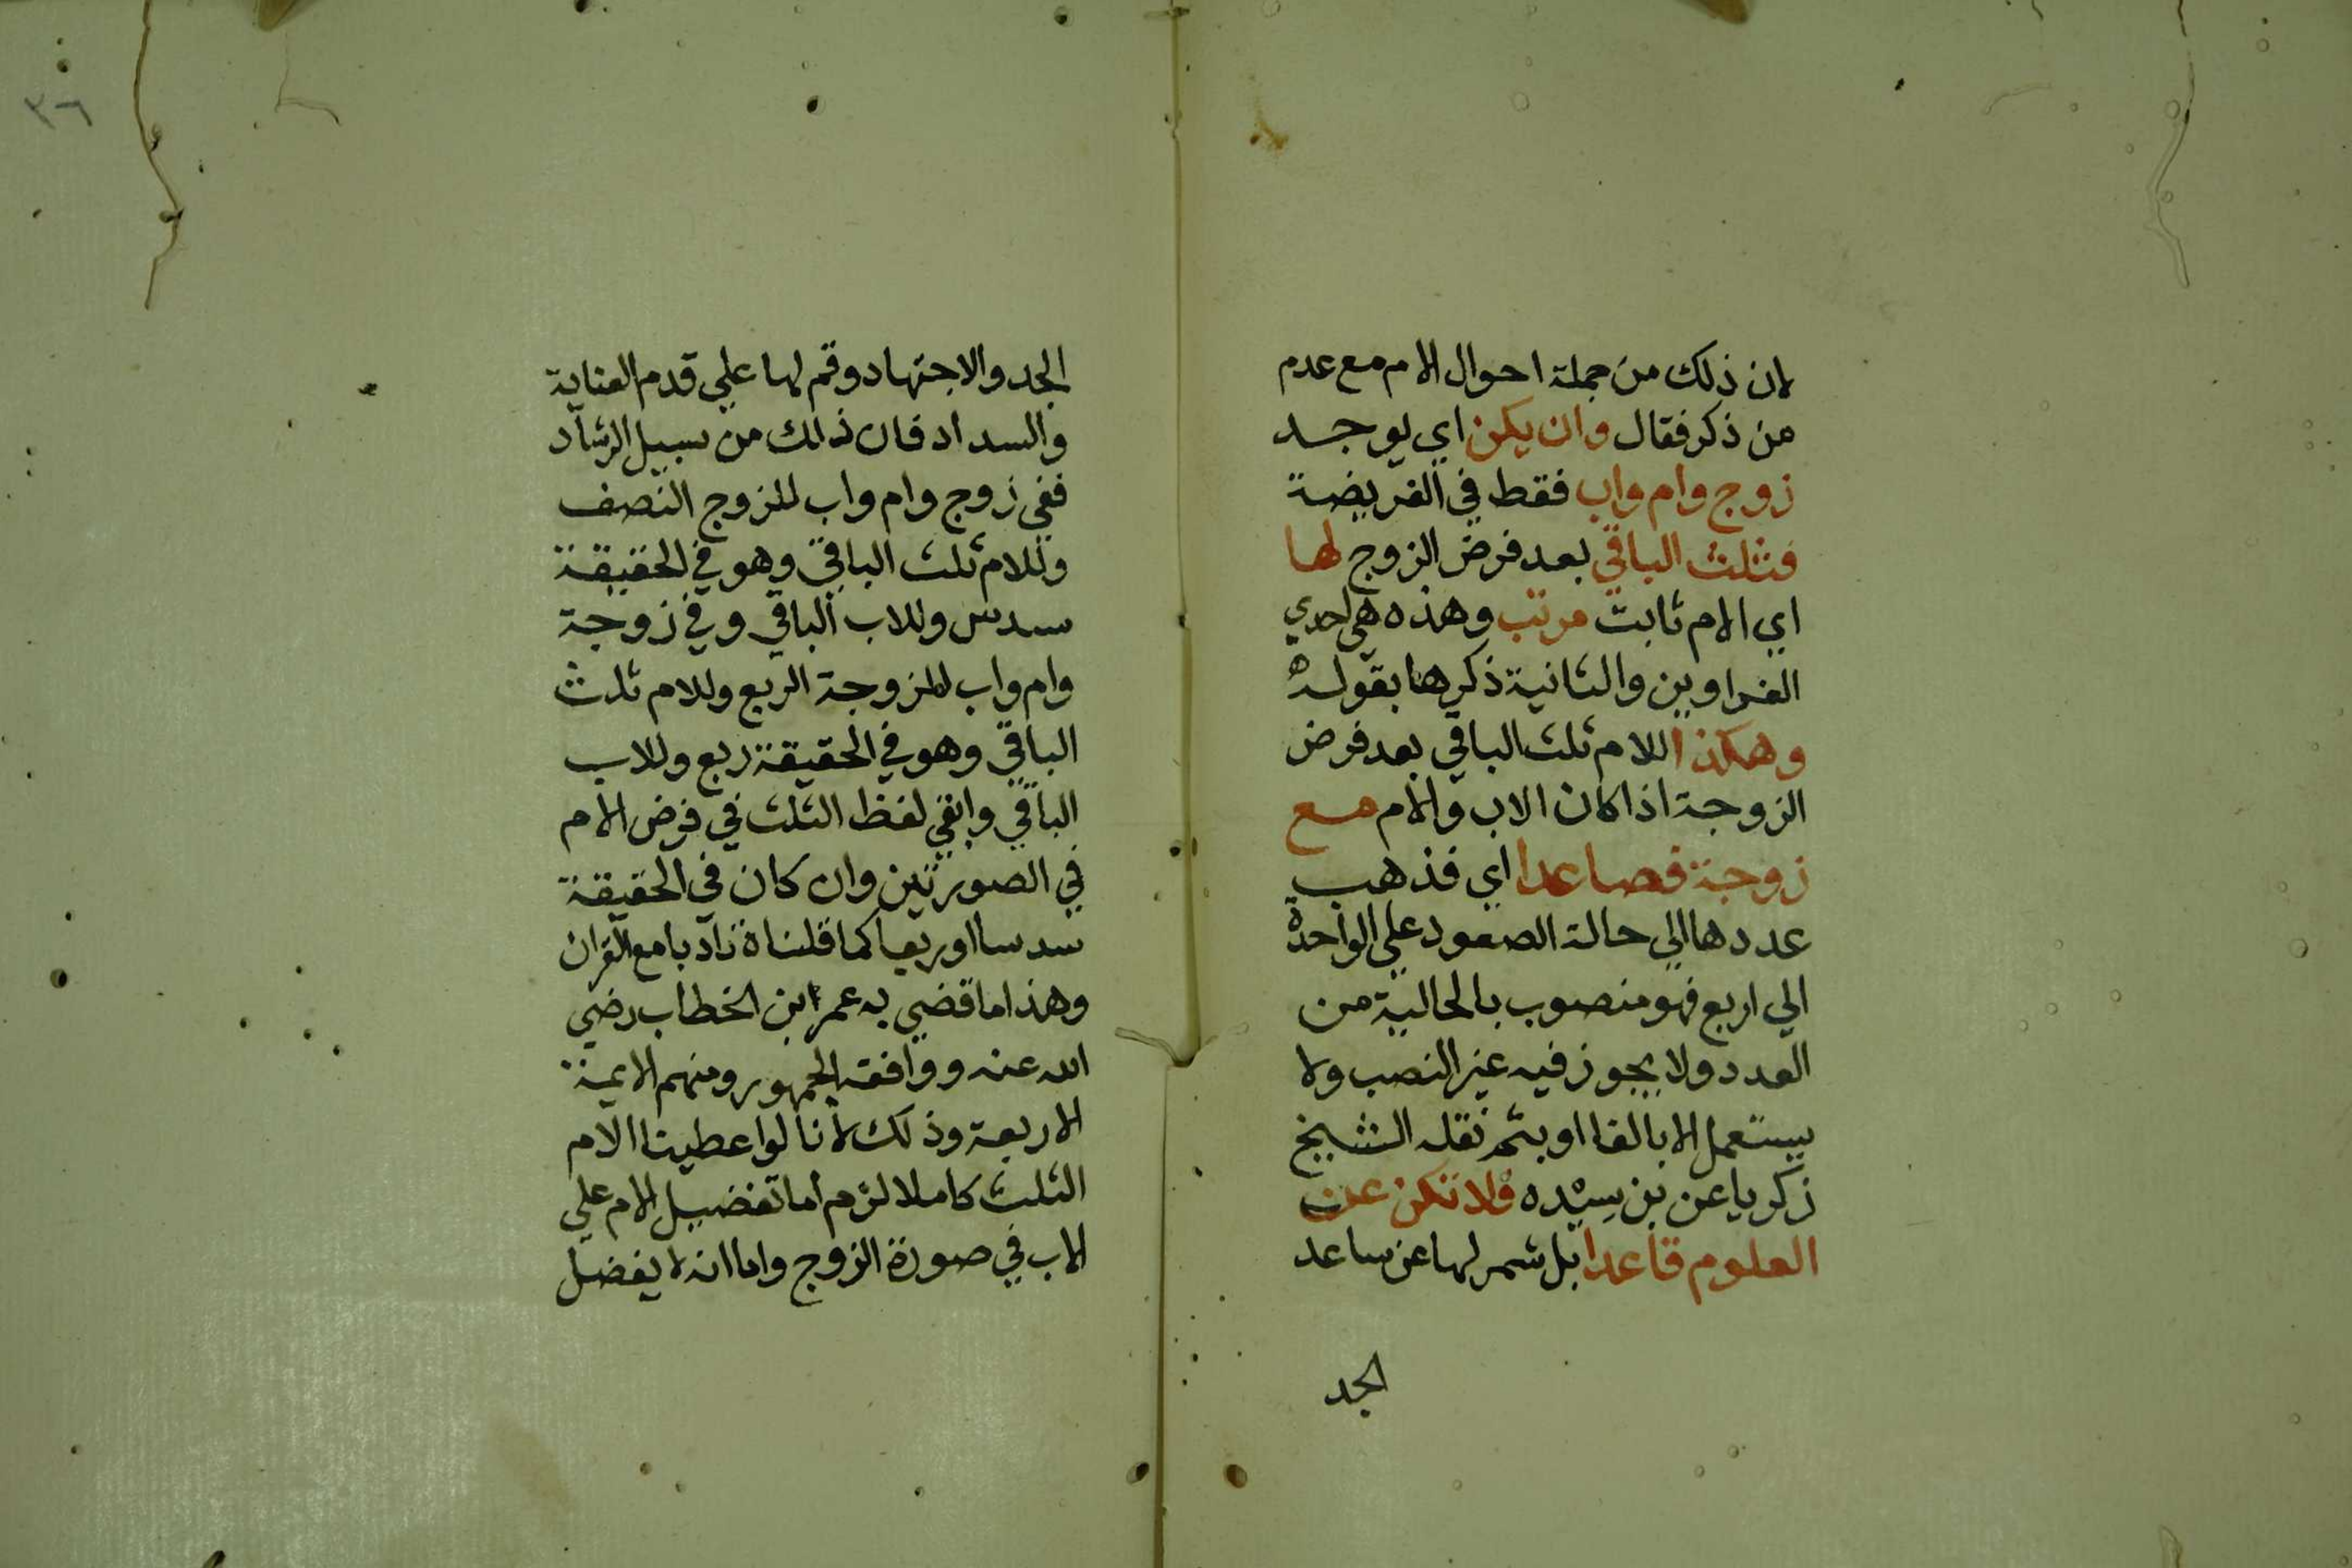 لان ذلك من جملة احوال الام مع عدم
من ذكر فقال وان يكن اي يوجد
زوج وام واب فقط في الفريضة
فثلث الباقي بعد فرض الزوج لها
اي الام ثابت مرتب وهذه هي احدي
الغراوين والثانية ذكرها بقوله
وهكذا للام ثلث الباقي بعد فرض
الزوجة اذا كان الاب والام مع
زوجة فصاعدا اي فذهب
عددها الي حالة الصعود علي الواحدة
الي اربع فهو منصوب بالحالية من
العدد ولا يجوز فيه غير النصب ولا
يستعمل الا بالفا او بثم نقله الشيخ
زكريا عن بن سيده فلا تكن عن
العلوم قاعدا بل شمر لها عن ساعد
الجد
٣٦
الجد والاجتهاد وقم لها علي قدم العناية
والسداد فان ذلك من سبيل الرشاد
ففي زوج وام واب للزوج النصف
وللام ثلث الباقي وهو في الحقيقة
سدس وللاب الباقي وفي زوجة
وام واب للزوجة الربع وللام ثلث
الباقي وهو في الحقيقة ربع وللاب
الباقي وابقي لفظ الثلث في فرض الام
في الصورتين وان كان في الحقيقة
سدسا او ربعا كما قلناه تادبا مع القران
وهذا ما قضي به عمر ابن الخطاب رضي
الله عنه ووافقه الجمهور ومنهم الايمة
الاربعة وذلك لانا لو اعطينا الام
الثلث كاملا لزم اما تفضيل الام علي
الاب في صورة الزوج واما انه لا يفضل